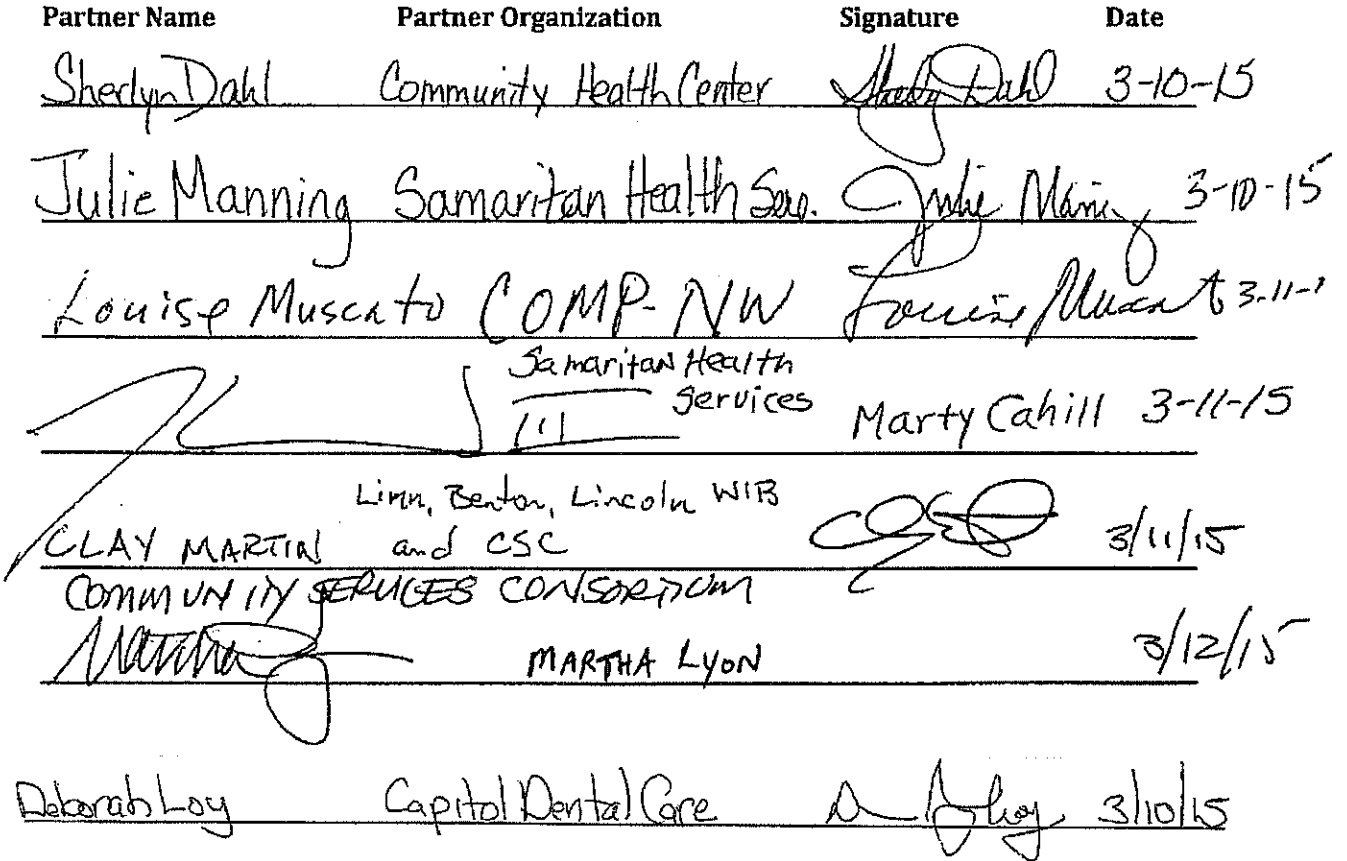 Partner Name Partner Organization Signature Date
Sherlyn Dahl Community Health Center Sherlyn Dahl 3-10-15
Julie Manning Samaritan Health Serv. Julie Manning 3-10-15
Louise Muscato COMP-NW Louise Muscato 3-11-1
Samaritan Health
Services
Marty Cahill 3-11-15
Linn, Benton, Lincoln WIB
CLAY MARTIN and CSC 3/11/15
COMMUNITY SERVICES CONSORTIUM
Martha MARTHA LYON 3/12/15
Deborah Loy Capitol Dental Care Loy 3/10/15